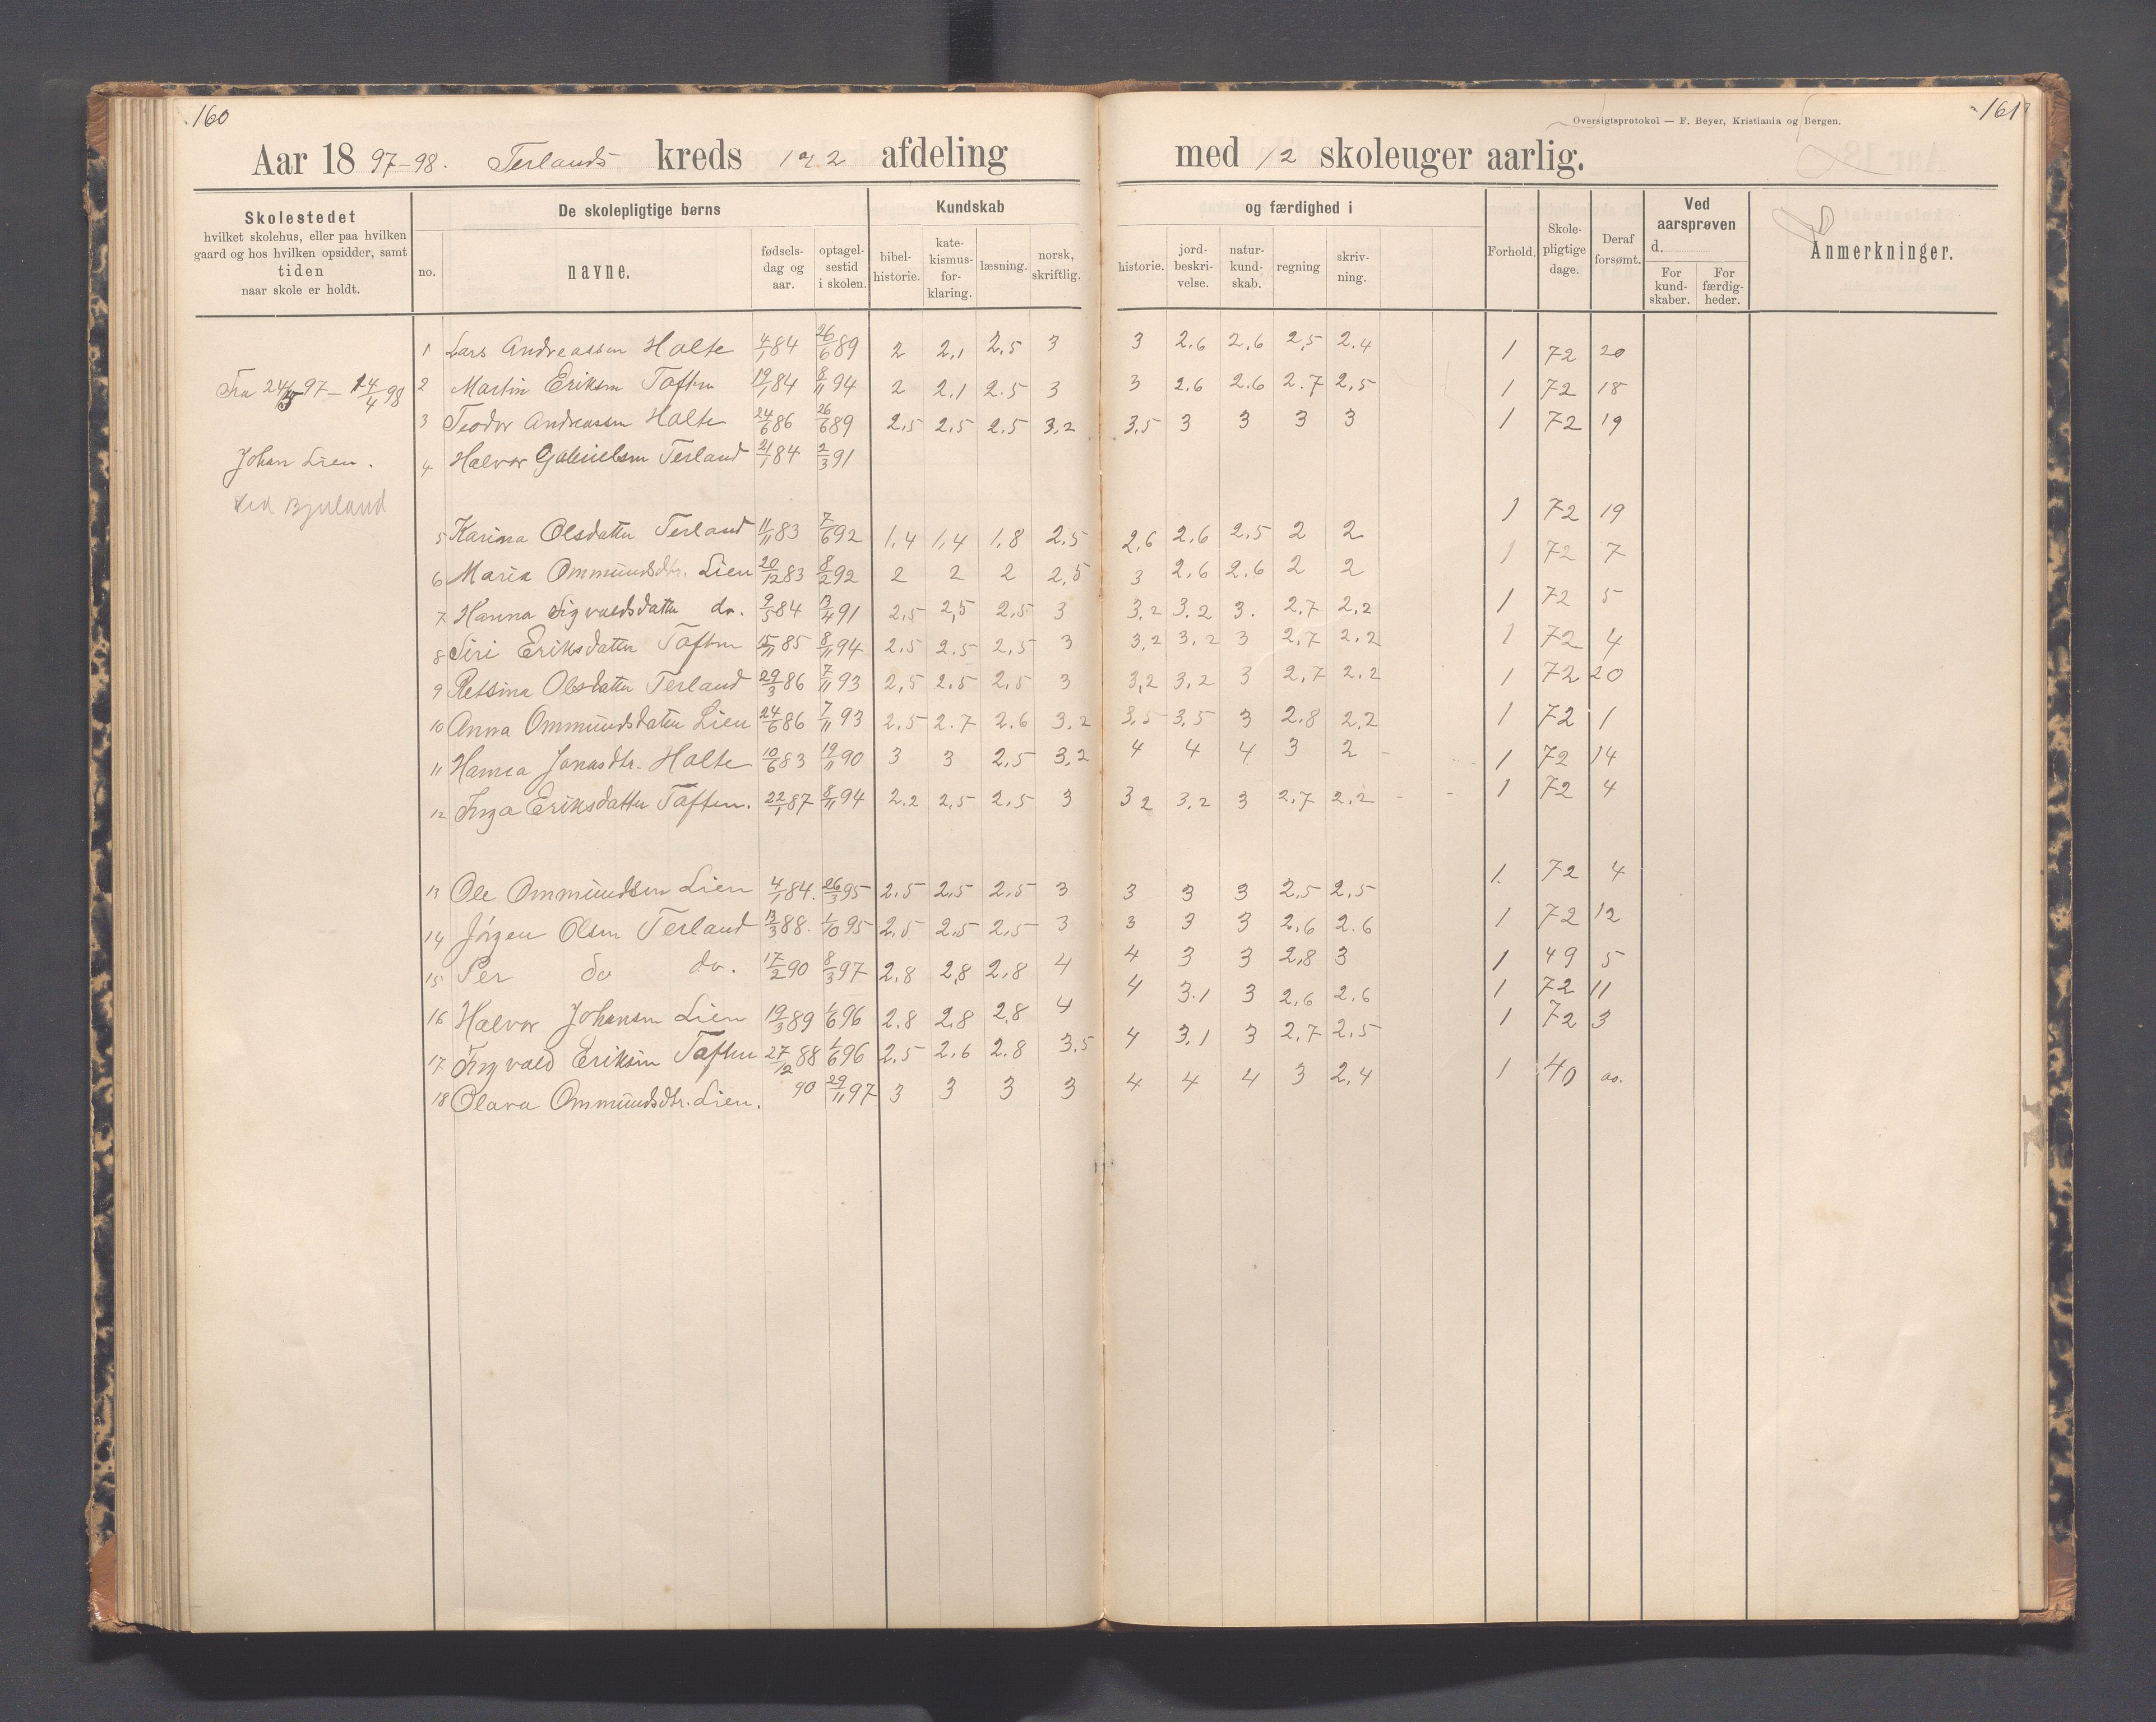 160
Aar 18 97-98. Terlands kreds 1 & 2 afdeling
Skolestedet
hvilket skolehus, eller paa hvilken
gaard og hos hvilken opsidder, samt
tiden
naar skole er holdt.
De skolepligtige børns
no. navne. fødsels-dag og aar. optagel-sestid i skolen.
Kundskab
bibel-historie. kate-kismus-for-klaring. læsning. norsk, skriftlig.
Fra 24/3 97 - 14/4 98
Johan Lien.
1 Lars Andreassen Holte 4/1 84 26/6 89 2 2,1 2,5 3
2 Martin Eriksen Taften 19/1 84 8/11 94 2 2,1 2.5 3
3 Teodor Andreassen Holte 24/6 86 26/6 89 2,5 2,5 2,5 3,2
4 Halvor Gabrielsen Terland 21/1 84 2/3 91
5 Karina Olsdatter Terland 11/11 83 7/6 92 1,4 1,4 1,8 2,5
6 Maria Ommundsdtr. Lien 20/12 83 8/2 92 2 2 2 2,5
7 Hanna Sigvaldsdatter do. 9/5 84 13/4 91 2,5 2,5 2,5 3
8 Siri Eriksdatter Taften 15/11 85 8/11 94 2,5 2,5 2,5 3
9 Retsina Olsdatter Terland 29/3 86 7/11 93 2,5 2,5 2,5 3
10 Anna Ommundsdatter Lien 24/6 86 7/11 93 2,5 2.7 2.6 3,2
11 Hanna Jonasdtr. Holte 10/6 83 19/11 90 3 3 2,5 3,2
12 Inga Eriksdatter Taften. 22/1 87 8/11 94 2.2 2,5 2,5 3
13 Ole Ommundsen Lien 4/1 84. 26/3 95 2,5 2,5 2,5 3
14 Jörgen Olsen Terland 13/3 88. 1/10 95 2,5 2,5 2,5 3
15 Per do do. 17/2 90 8/3 97 2,8 2,8 2,8 4
16 Halvor Johansen Lien 19/3 89 1/6 96 2,8 2,8 2,8 4
17 Ingvald Eriksen Taften 27/12 88 1/6 96 2,5 2,6 2.8 3,5
18 Olava Ommundsdtr. Lien. 90 29/11 97 3 3 3 3
161
Oversigtsprotokol — F. Beyer, Kristiania og Bergen.
med 12 skoleuger aarlig.
og færdighed i
historie. jord-beskri-velse. natur-kund-skab. regning skriv-ning.
Forhold. Skole-pligtige dage. Deraf forsømt.
Ved aarsprøven d.
For kund-skaber. For færdig-heder.
Anmerkninger.
3 2.6 2,6 2,5 2.4 1 72 20
3 2.6 2.6 2.7 2,5 1 72 18
3,5 3 3 3 3 1 72 19
1 72 19
2,6 2.6 2,5 2 2 1 72 7
3 2.6 2.6 2 2 1 72 5
3,2 3.2 3. 2,7 2,2 1 72 4
3,2 3,2 3 2,7 2.2 1 72 20
3,2 3,2 3 2,7 2.2 1 72 1
3,5 3,5 3 2.8 2,2 1 72 14
4 4 4 3 2 1 72 4
3 2 3,2 3 2,7 2,2
1. 72 4
3 3 3 2,5 2,5 1 72 12
3 3 3 2,6 2.6 1 49 5
4 3 3 2,8 3 1 72 11
4 3.1 3 2,6 2.6 1 72 3
4 3,1 3 2,7 2,5 1 40 ao.
4 4 4 3 2,4